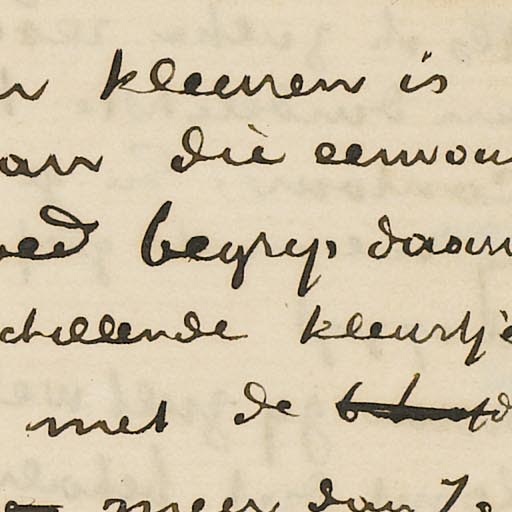 n kleuren is
an die eenvou
oed begryp daarv
chillende kleurtje
met de
meer dan Ze